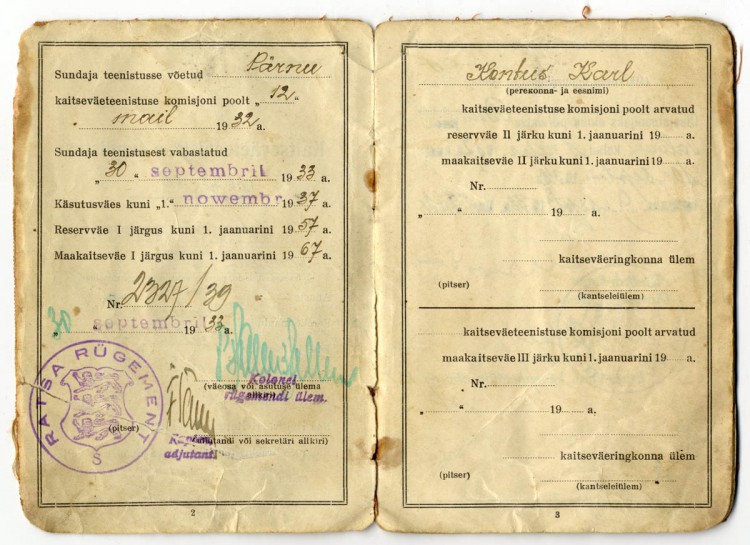 Sundaja teenistusse võetud Pärnu
kaitseväeteenistuse komisjoni poolt „ 12 “
mail 1932 a.
Sundaja teenistusest vabastatud
„ 30 “ septembril 1933 a.
Käsutusväes kuni „1.“ nowembr. 1937 a.
Reservväe I järgus kuni 1. jaanuarini 1957 a.
Maakaitseväe I järgus kuni 1. jaanuarini 1967 a.
Nr. 2327/39
„ 30 “ septembril 1933 a.
RATSA RÜGEMENT
S
(pitser)
Kolonel
(väeosa või asutuse ülema allkiri)
rügemendi ülem.
(adjutandi või sekretäri allkiri)
adjutant.
2
Kontus Karl
(perekonna- ja eesnimi)
kaitseväeteenistuse komisjoni poolt arvatud
reservväe II järku kuni 1. jaanuarini 19 a.
maakaitseväe II järku kuni 1. jaanuarini 19 a.
Nr.
„ “ 19 a.
kaitseväeringkonna ülem
(pitser)
(kantseleiülem)
kaitseväeteenistuse komisjoni poolt arvatud
maakaitseväe III järku kuni 1. jaanuarini 19 a.
Nr.
„ “ 19 a.
kaitseväeringkonna ülem
(pitser)
(kantseleiülem)
3